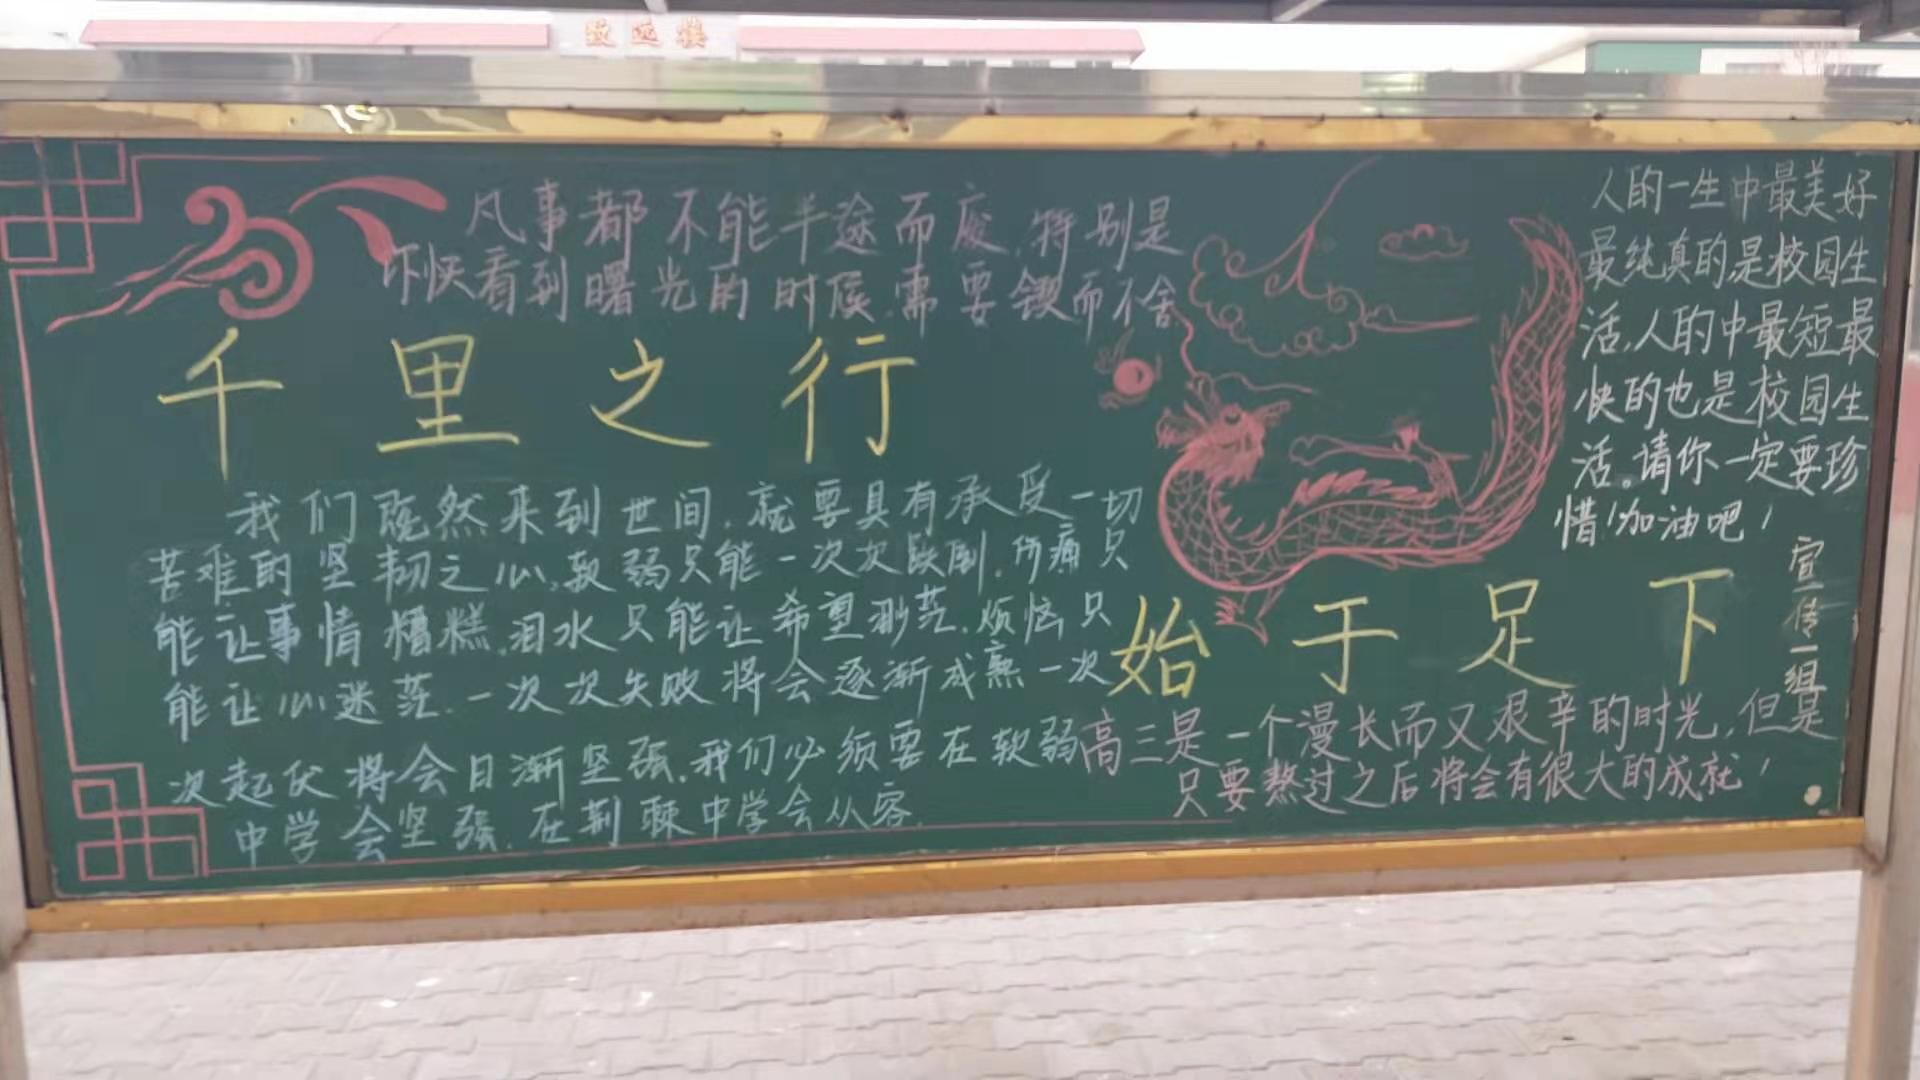 致远楼
凡事都不能半途而废,特别是
快看到曙光的时候,需要锲而不舍
千里之行
我们既然来到世间,就要具有承受一切
苦难的坚韧之心,软弱只能一次次跌倒,伤痛只
能让事情糟糕,泪水只能让希望渺茫,烦恼只
能让心迷茫,一次次失败将会逐渐成熟一次
次起伏将会日渐坚强,我们必须要在软弱
中学会坚强,在荆棘中学会从容.
人的一生中最美好
最纯真的,是校园生
活,人的中最短最
快的也是校园生
活。请你一定要珍
惜!加油吧!
始于足下
宣传一组
高三是一个漫长而又艰辛的时光,但是
只要熬过之后将会有很大的成就!